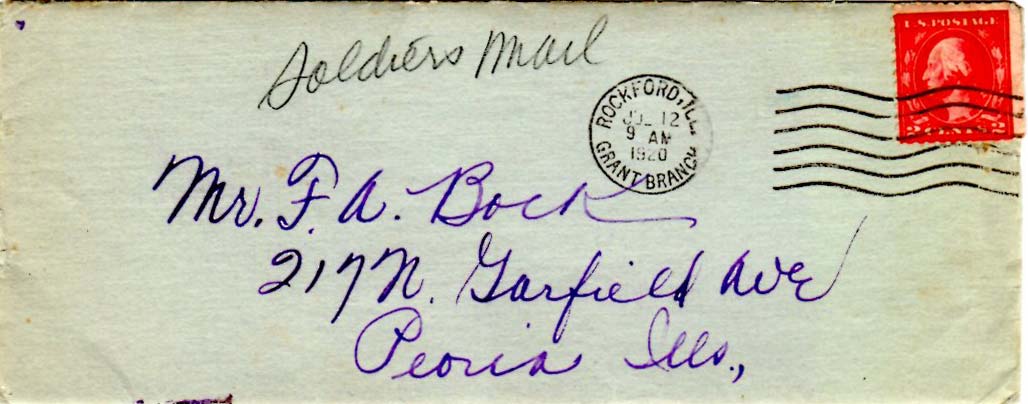 Soldiers Mail
U.S. POSTAGE
2 CENTS 2
ROCKFORD, ILL.
JUL 12
9 AM
1920
GRANT BRANCH
Mr. F. A. Bock
217 N. Garfield Ave
Peoria Ills.,